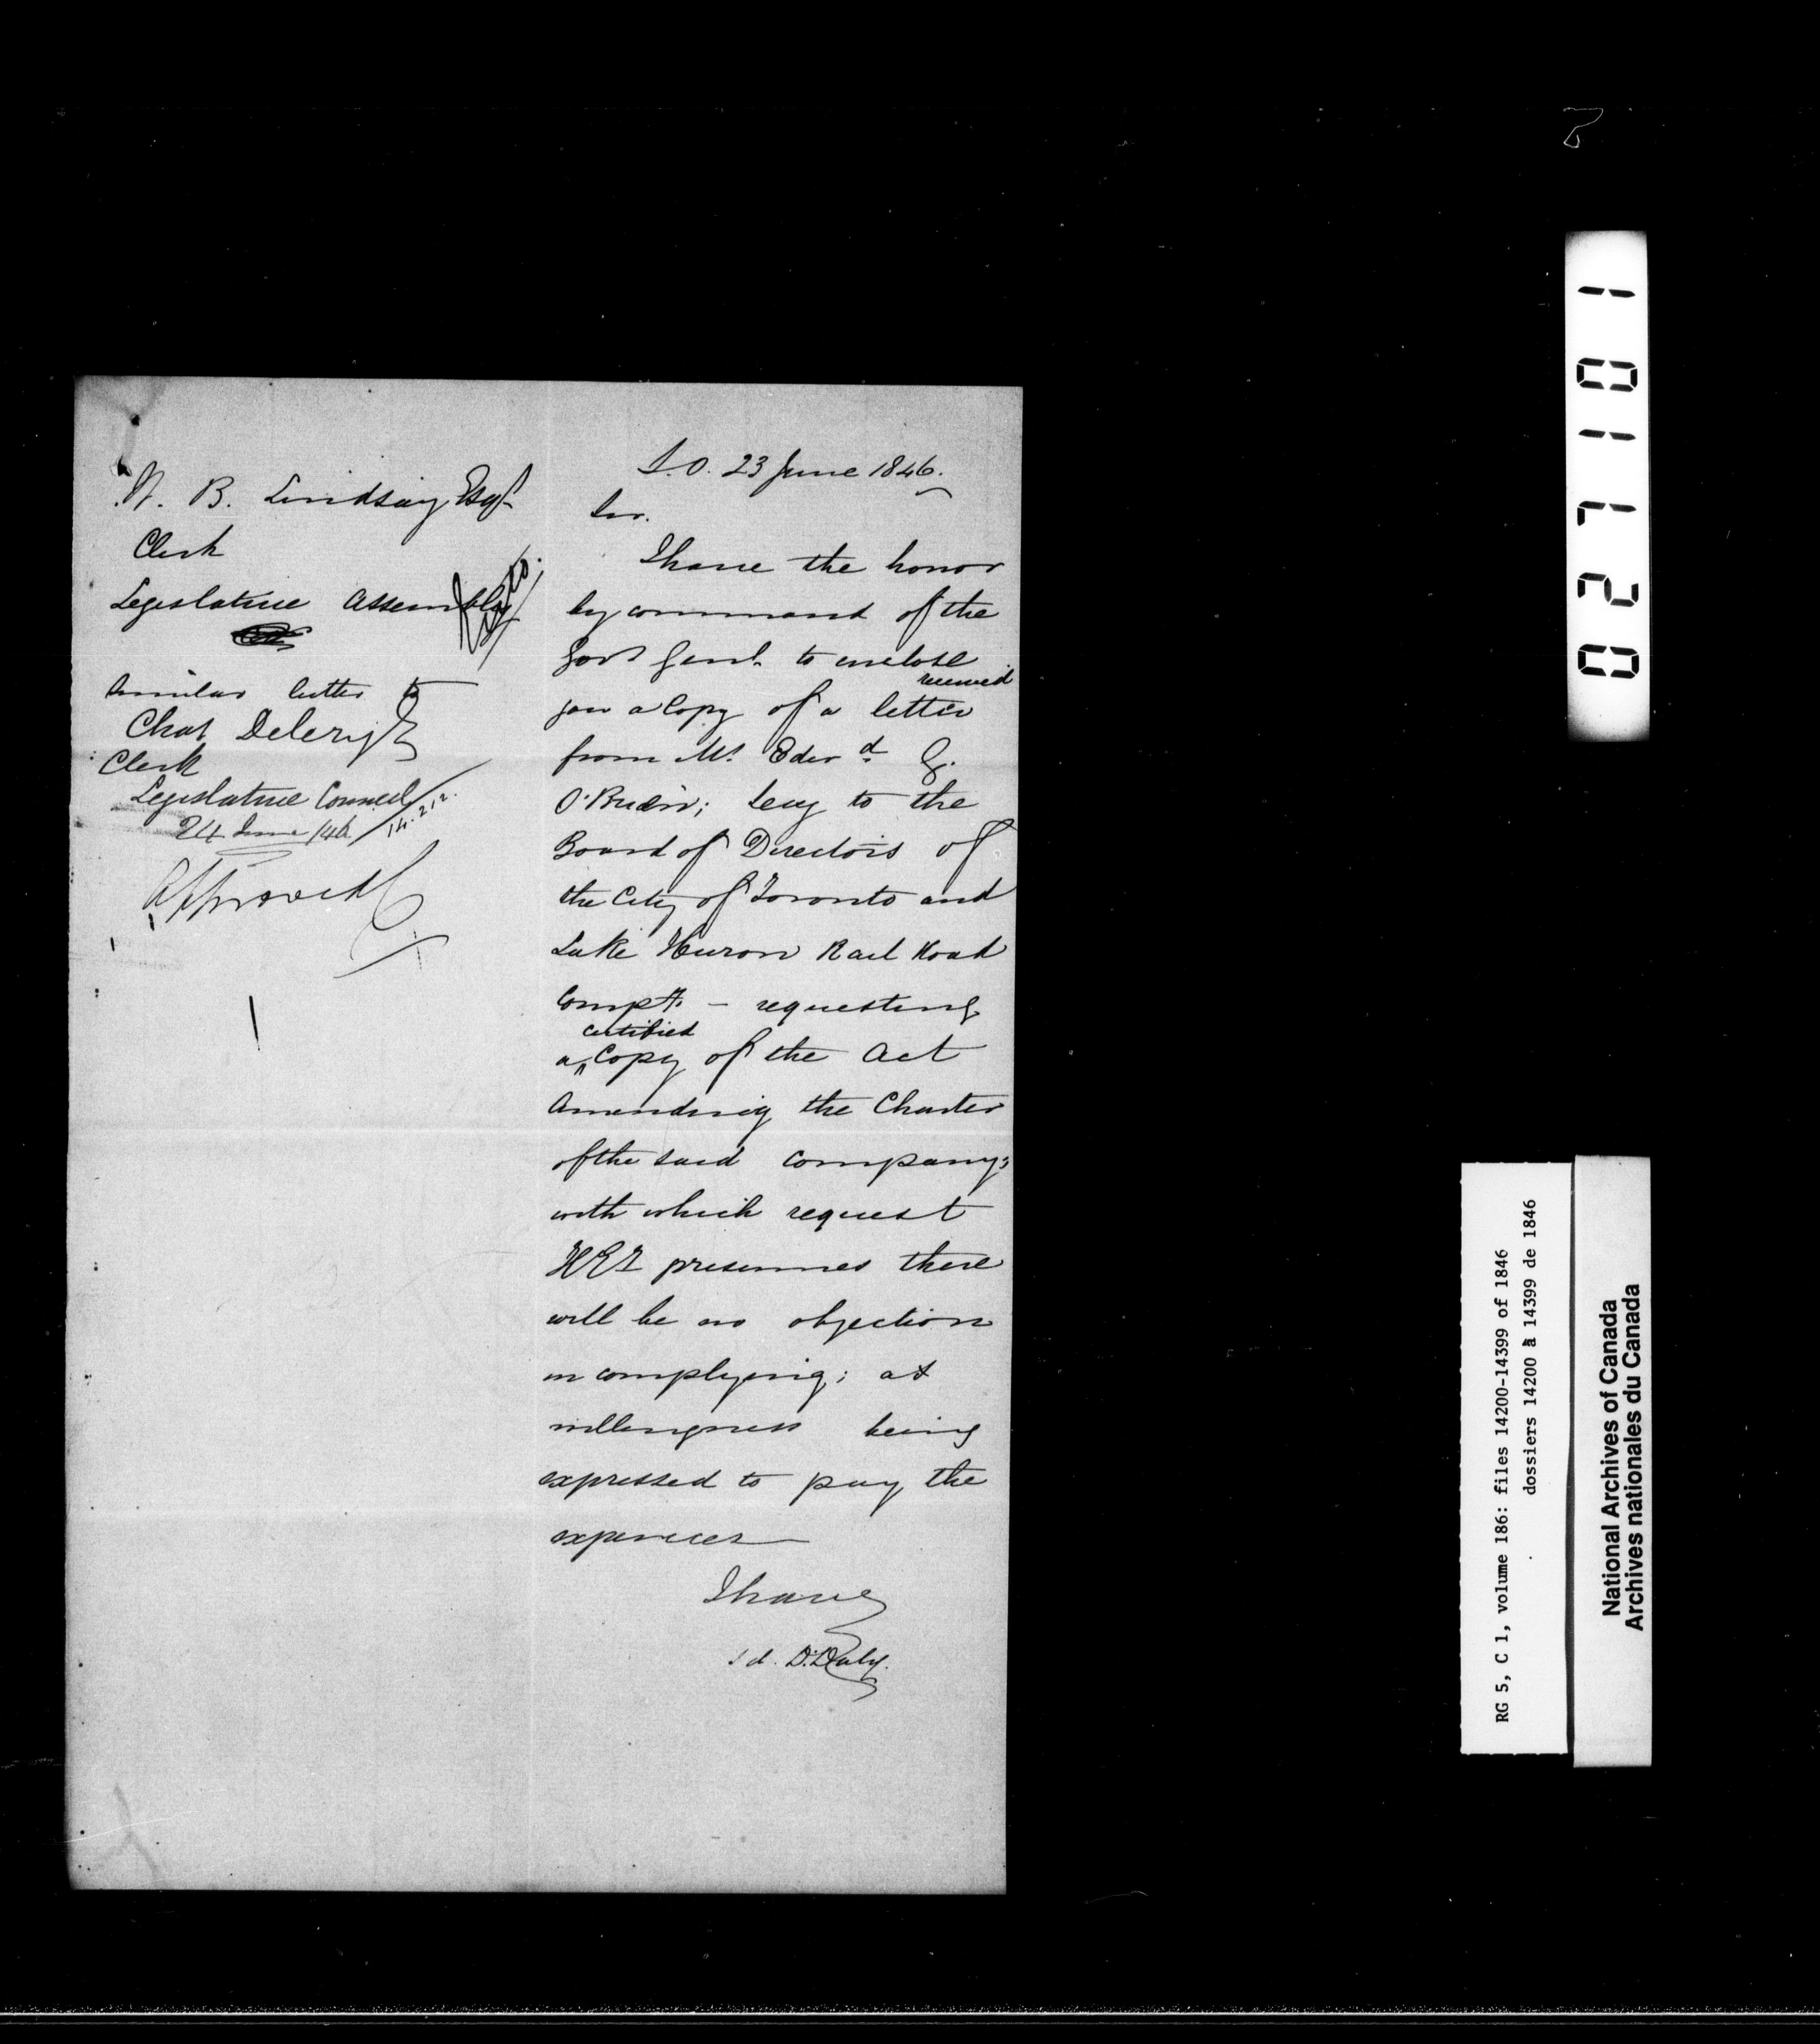 W. B. Lindsay Esqr
Clerk
Legislative Assembly
Similar letter to
Chas Delery
Clerk
Legislative Council
24 June /46
14.212.
Approved
S.O. 23 June 1846.
Sir.
I have the honor
by command of the
Govr Genl. to enclose
received
you a Copy of a letter
from Mr. Edwd. G.
O'Brien; Secy to the
Board of Directors of
the City of Toronto and
Lake Huron Rail Road
Compy. – requesting
certified
a Copy of the Act
Amending the Charter
of the said Company;
with which request
HEx presumes there
will be no objection
in complying; as
willingness being
expressed to pay the
expences
I have
sd. D. Daly.
027101
RG 5, C 1, volume 186: files 14200-14399 of 1846
dossiers 14200 à 14399 de 1846
National Archives of Canada
Archives nationales du Canada